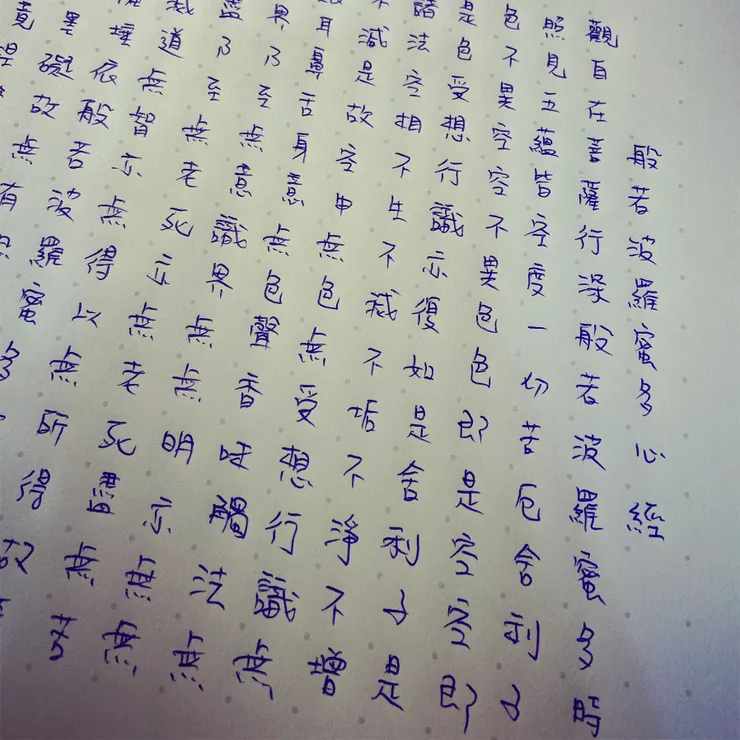 般若波羅蜜多心經
觀自在菩薩行深般若波羅蜜多時
照見五蘊皆空度一切苦厄舍利子
色不異空空不異色色即是空空即
是色受想行識亦復如是舍利子是
諸法空相不生不滅不垢不淨不增
減是故空中無色無受想行識無
耳鼻舌身意無色聲香味觸法無
界乃至無意識界無無明亦無
盡乃至無老死亦無老死盡無苦
滅道無智亦無得以無所得故
埵依般若波羅蜜多故
罣礙故無有
竟